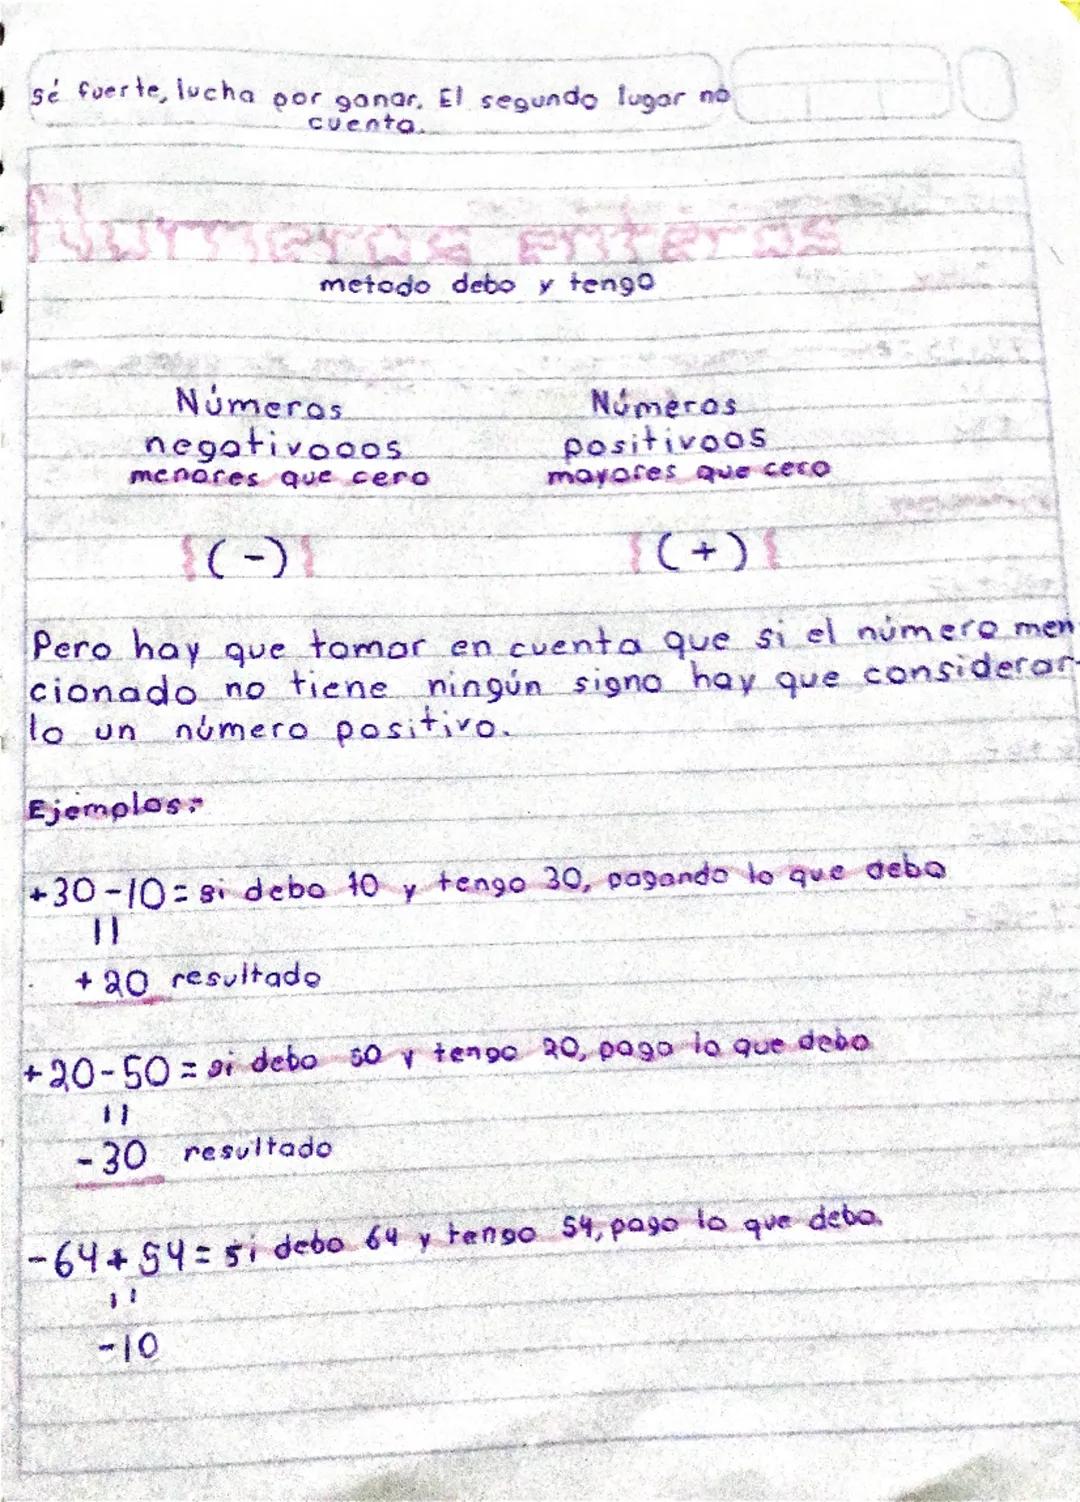 sé fuerte, lucha por ganar. El segundo lugar no
cuenta.
Números enteros
metodo debo y tengo
Números Números
negativooos positivoos
menores que cero mayores que cero
{(-)} {(+)}
Pero hay que tomar en cuenta que si el número men
cionado no tiene ningún signo hay que considerar-
lo un número positivo.
Ejemplos:
+30-10= si debo 10 y tengo 30, pagando lo que debo
||
+20 resultado
+20-50= si debo 50 y tengo 20, pago lo que debo
||
-30 resultado
-64+54= si debo 64 y tengo 54, pago lo que debo.
||
-10